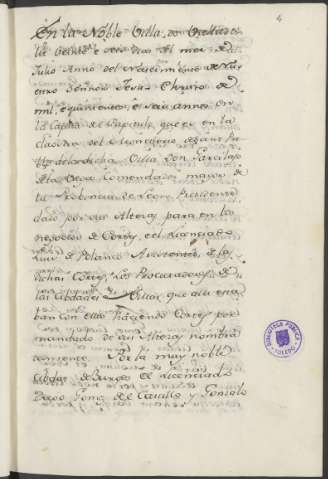 4
En la Noble Villa de Valladolid
a veinte e seis dias del mes de
Julio Anno del Nacimiento de Nu
estro Señor Jesu Christo de
mil, e quinientos e seis annos en
la Capilla del Capitulo, que es en la
claostra del Monesterio de San Pa
blo de la dicha Villa, Don Garcilaso
de la Vega Comendador maior de
la Provincia de Leon, Presidente
dado por sus Altezas para en los
negocios de Cortes, e el Licenciado
Luis de Polanco Asistentes de las
dichas Cortes, e los Procuradores de
las Cibdades e Villas, que alli esta
ban con ellos faciendo Cortes por
mandado de sus Altezas nombra
damente. De la muy noble
Cibdad de Burgos el Licenciado
Diego Gonz de el Castillo y Gonzalo
BIBLIOTECA PUBLICA
TOLEDO